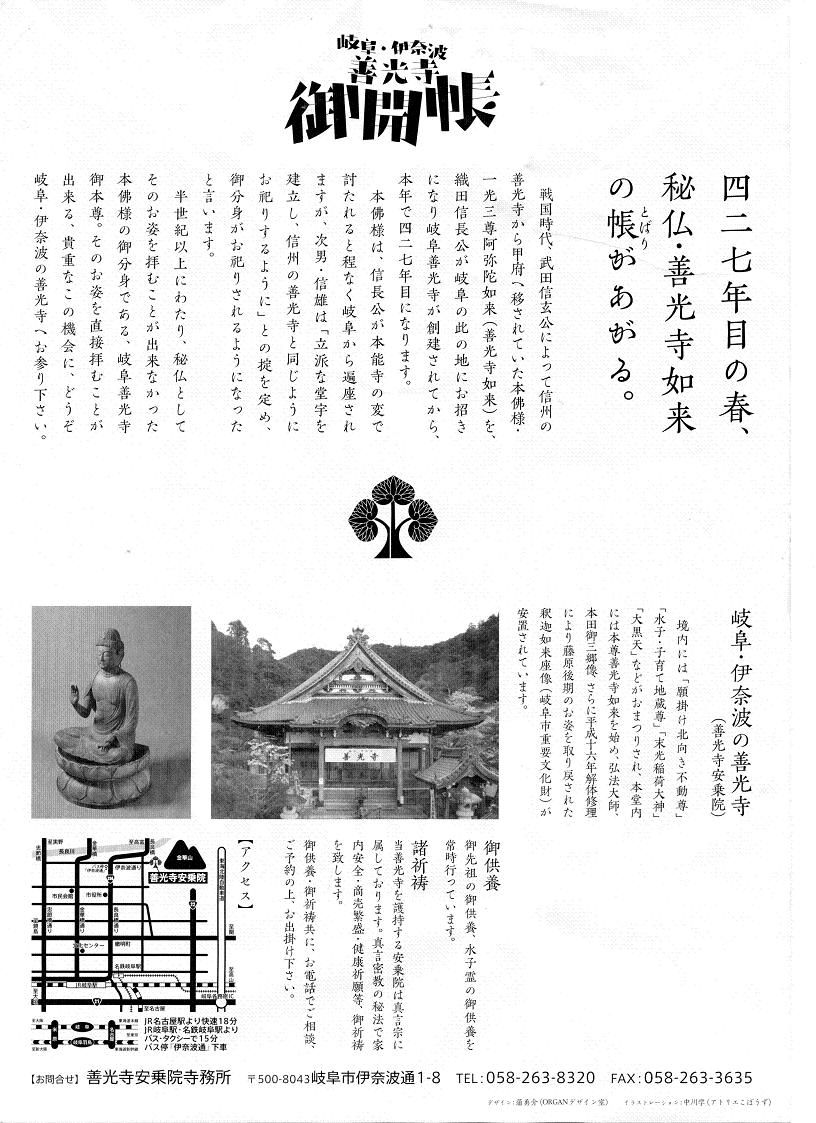 岐阜・伊奈波
善光寺
御開帳
四二七年目の春、
秘仏・善光寺如来
の帳があがる。
とばり
戦国時代、武田信玄公によって信州の
善光寺から甲府へ移されていた本佛様・
一光三尊阿弥陀如来（善光寺如来）を、
織田信長公が岐阜の此の地にお招き
になり岐阜善光寺が創建されてから、
本年で四二七年目になります。
本佛様は、信長公が本能寺の変で
討たれると程なく岐阜から遍座され
ますが、次男・信雄は「立派な堂宇を
建立し、信州の善光寺と同じように
お祀りするように」との掟を定め、
御分身がお祀りされるようになった
と言います。
半世紀以上にわたり、秘仏として
そのお姿を拝むことが出来なかった
本佛様の御分身である、岐阜善光寺
御本尊。そのお姿を直接拝むことが
出来る、貴重なこの機会に、どうぞ
岐阜・伊奈波の善光寺へお参り下さい。
岐阜・伊奈波の善光寺
（善光寺安乗院）
境内には「願掛け北向き不動尊」
「水子・子育て地蔵尊」「末光稲荷大神」
「大黒天」などがおまつりされ、本堂内
には本尊善光寺如来を始め、弘法大師、
本田御三郷像、さらに平成十六年解体修理
により藤原後期のお姿を取り戻された
釈迦如来座像（岐阜市重要文化財）が
安置されています。
善光寺
御供養
御先祖の御供養、水子霊の御供養を
常時行っています。
諸祈祷
当善光寺を護持する安乗院は真言宗に
属しております。真言密教の秘法で家
内安全・商売繁盛・健康祈願等、御祈祷
を致します。
御供養・御祈祷共に、お電話でご相談、
ご予約の上、お出掛け下さい。
【アクセス】
至黒野
至高富
長良川
金華橋
長良橋
忠節橋
金華山
伊奈波通り
善光寺安乗院
市民会館
市役所
忠節橋通り
金華橋通り
長良橋通り
徹明町
名鉄岐阜駅
JR岐阜駅
東海北陸自動車道
至関
至高山
岐阜各務原IC
至名古屋
岐阜
岐阜羽島
東海道本線
東海道新幹線
至大阪
至新大阪
至東京
JR名古屋駅より快速18分
JR岐阜駅・名鉄岐阜駅より
バス・タクシーで15分
バス停「伊奈波通」下車
【お問合せ】 善光寺安乗院寺務所 〒500-8043岐阜市伊奈波通1-8 TEL:058-263-8320 FAX:058-263-3635
デザイン:蒲勇介（ORGANデザイン室） イラストレーション:中川学（アトリエこぼうず）